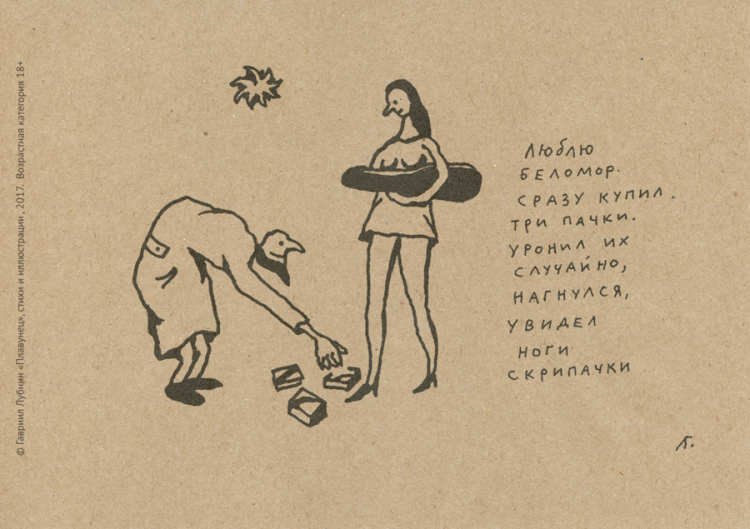 © Гавриил Лубнин «Плавунец», стихи и иллюстрации, 2017. Возрастная категория 18+
ЛЮБЛЮ
БЕЛОМОР.
СРАЗУ КУПИЛ.
ТРИ ПАЧКИ.
УРОНИЛ ИХ
СЛУЧАЙНО,
НАГНУЛСЯ,
УВИДЕЛ
НОГИ
СКРИПАЧКИ
Г.